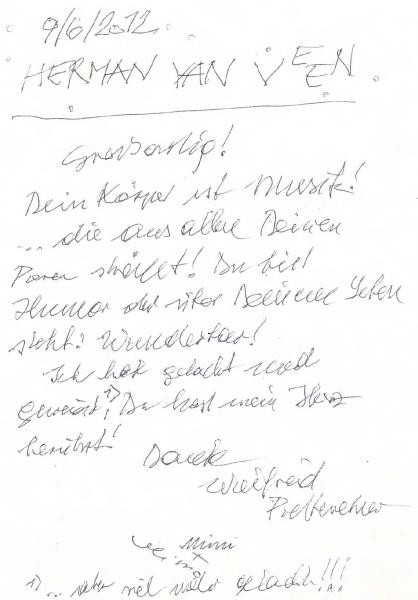 9/6/2012
HERMAN VAN VEEN
Großartig!
Dein Körper ist Musik!
... die aus allen Deinen
Poren strömt! Du bist
Humor der über Deinem Leben
steht! Wunderbar!
Ich hab gelacht und
geweint 1)! Du hast mein Herz
berührt!
Danke
Winfried
1) ... aber viel mehr gelacht!!!